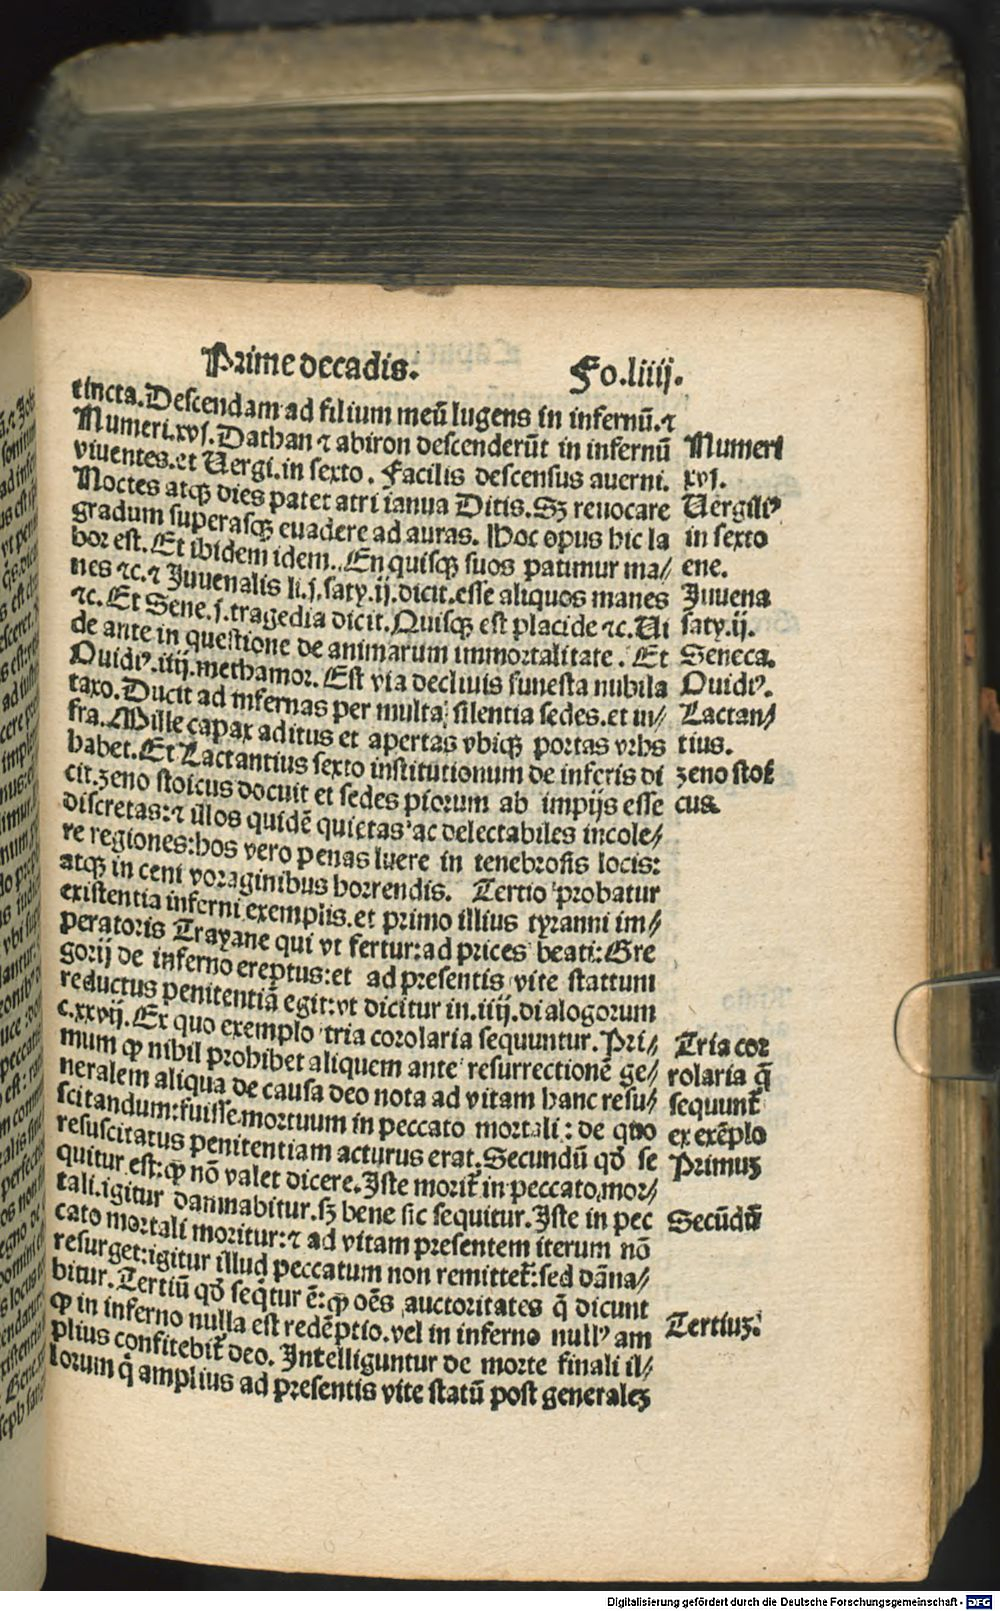 Prime decadis. Fo.liiij.
tincta. Descendam ad filium meū lugens in infernū. ⁊
Numeri.xvj. Dathan ⁊ abiron descenderūt in infernū
viuentes. et Uergi. in sexto. Facilis descensus auerni.
Noctes atqꝫ dies patet atri ianua Ditis. Sꝫ reuocare
gradum superasqꝫ euadere ad auras. Hoc opus hic la
bor est. Et ibidem idem. En quisqꝫ suos patimur ma//
nes ⁊c. ⁊ Juuenalis li.j. saty.ij. dicit. esse aliquos manes
⁊c. Et Sene.j. tragedia dicit. Quisqꝫ est placide ⁊c. Ui
de ante in questione de animarum immortalitate. Et
Ouidiꝰ.iiij. methamor. Est via decliuis funesta nubila
taxo. Ducit ad infernas per multa silentia sedes. et in//
fra. Mille capax aditus et apertas vbiqꝫ portas vrbs
habet. Et Lactantius sexto institutionum de inferis di
cit. zeno stoicus docuit et sedes piorum ab impijs esse
discretas: ⁊ illos quidē quietas ac delectabiles incole/
re regiones: hos vero penas luere in tenebrosis locis:
atqꝫ in ceni voraginibus horrendis. Tertio probatur
existentia inferni exemplis. et primo illius tyranni im//
peratoris Trayane qui vt fertur: ad prices beati: Gre
gorij de inferno ereptus: et ad presentis vite stattum
reductus penitentiā egit: vt dicitur in.iiij. dialogorum
c.xxvij. Ex quo exemplo tria corolaria sequuntur. Pri/
mum ꝙ nihil prohibet aliquem ante resurrectionē ge/
neralem aliqua de causa deo nota ad vitam hanc resu/
scitandum: fuisse mortuum in peccato mortali: de quo
resuscitatus penitentiam acturus erat. Secundū qđ se
quitur est: ꝙ nō valet dicere. Iste morit̄ in peccato mor/
tali. igitur damnabitur. sꝫ bene sic sequitur. Iste in pec
cato mortali moritur: ⁊ ad vitam presentem iterum nō
resurget: igitur illud peccatum non remittet̄: sed dāna/
bitur. Tertiū qđ seq̄tur ē: ꝙ oēs auctoritates q̄ dicunt
ꝙ in inferno nulla est redēptio. vel in inferno nullꝰ am
plius confitebit̄ deo. Intelliguntur de morte finali il//
lorum q̄ amplius ad presentis vite statū post generaleꝫ
Numeri
xvj.
Uergiliꝰ
in sexto
ene.
Juuena
saty.ij.
Seneca.
Ouidiꝰ.
Lactan/
tius.
zeno stoi
cus.
Tria cor
rolaria q̄
sequunt̄
ex exēplo
Primuꝫ
Secūdū
Tertiuꝫ.
Digitalisierung gefördert durch die Deutsche Forschungsgemeinschaft - DFG